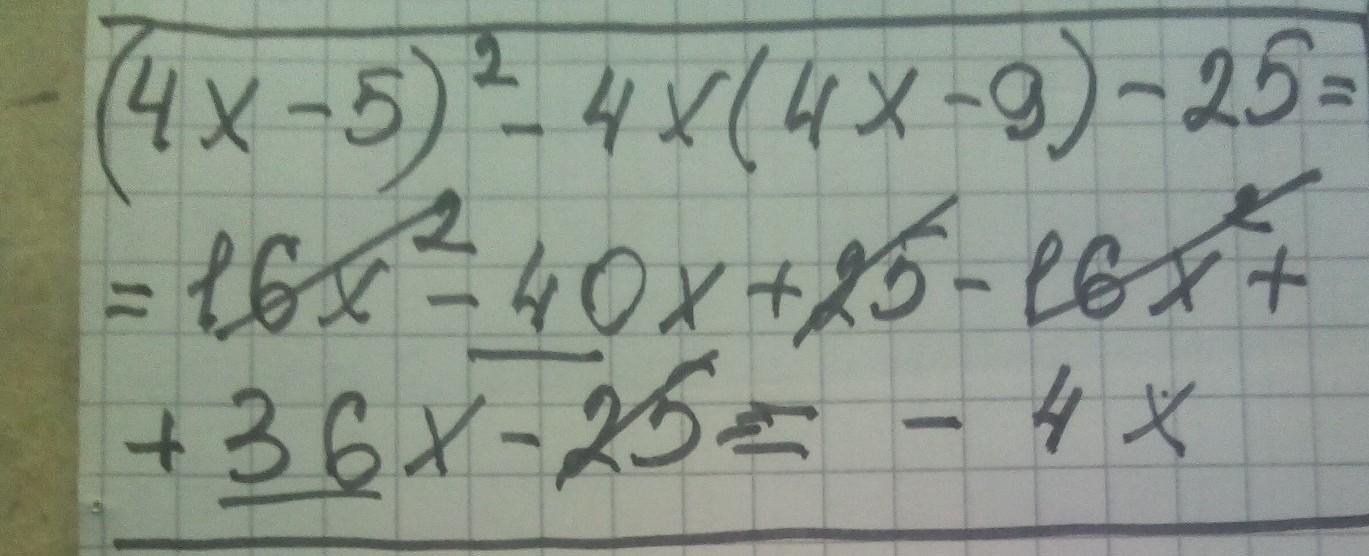 (4x-5)² - 4x(4x-9) - 25 =
= 16x² - 40x + 25 - 16x² +
+ 36x - 25 = - 4x